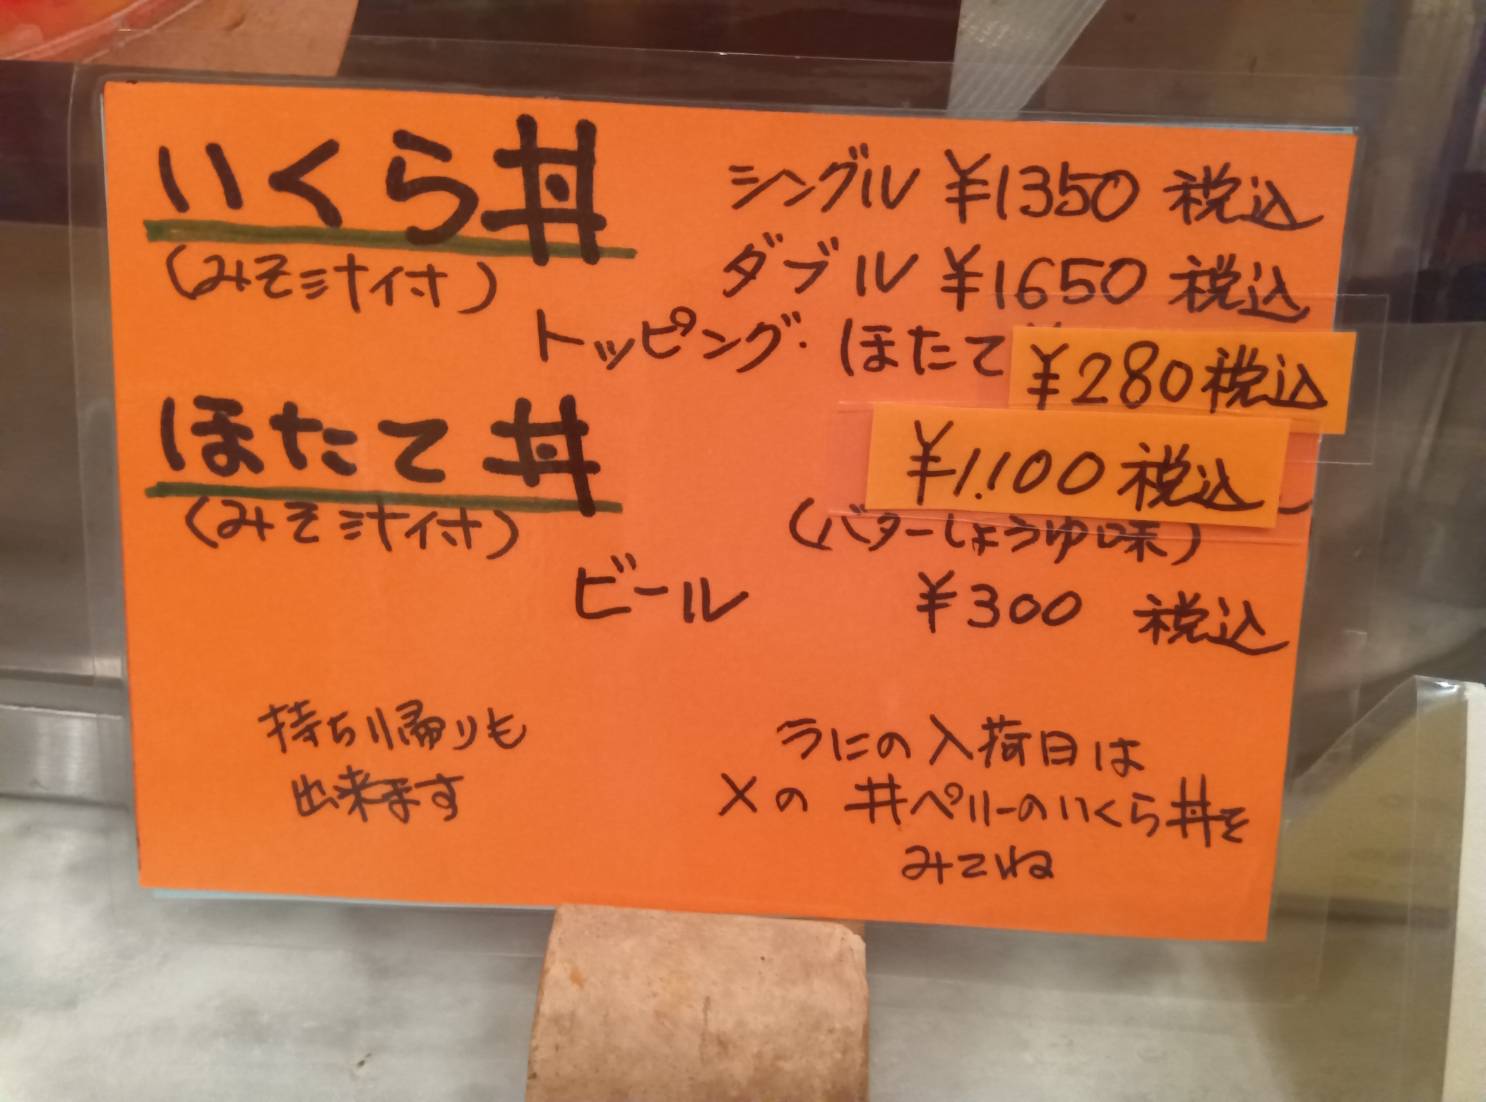 いくら丼 シングル ¥1350 税込
(みそ汁付) ダブル ¥1650 税込
トッピング・ほたて ¥280税込
ほたて丼 ¥1,100 税込
(みそ汁付) (バターしょうゆ味)
ビール ¥300 税込
持ち帰りも
出来ます
うにの入荷日は
Xの 丼ペリーのいくら丼を
みてね